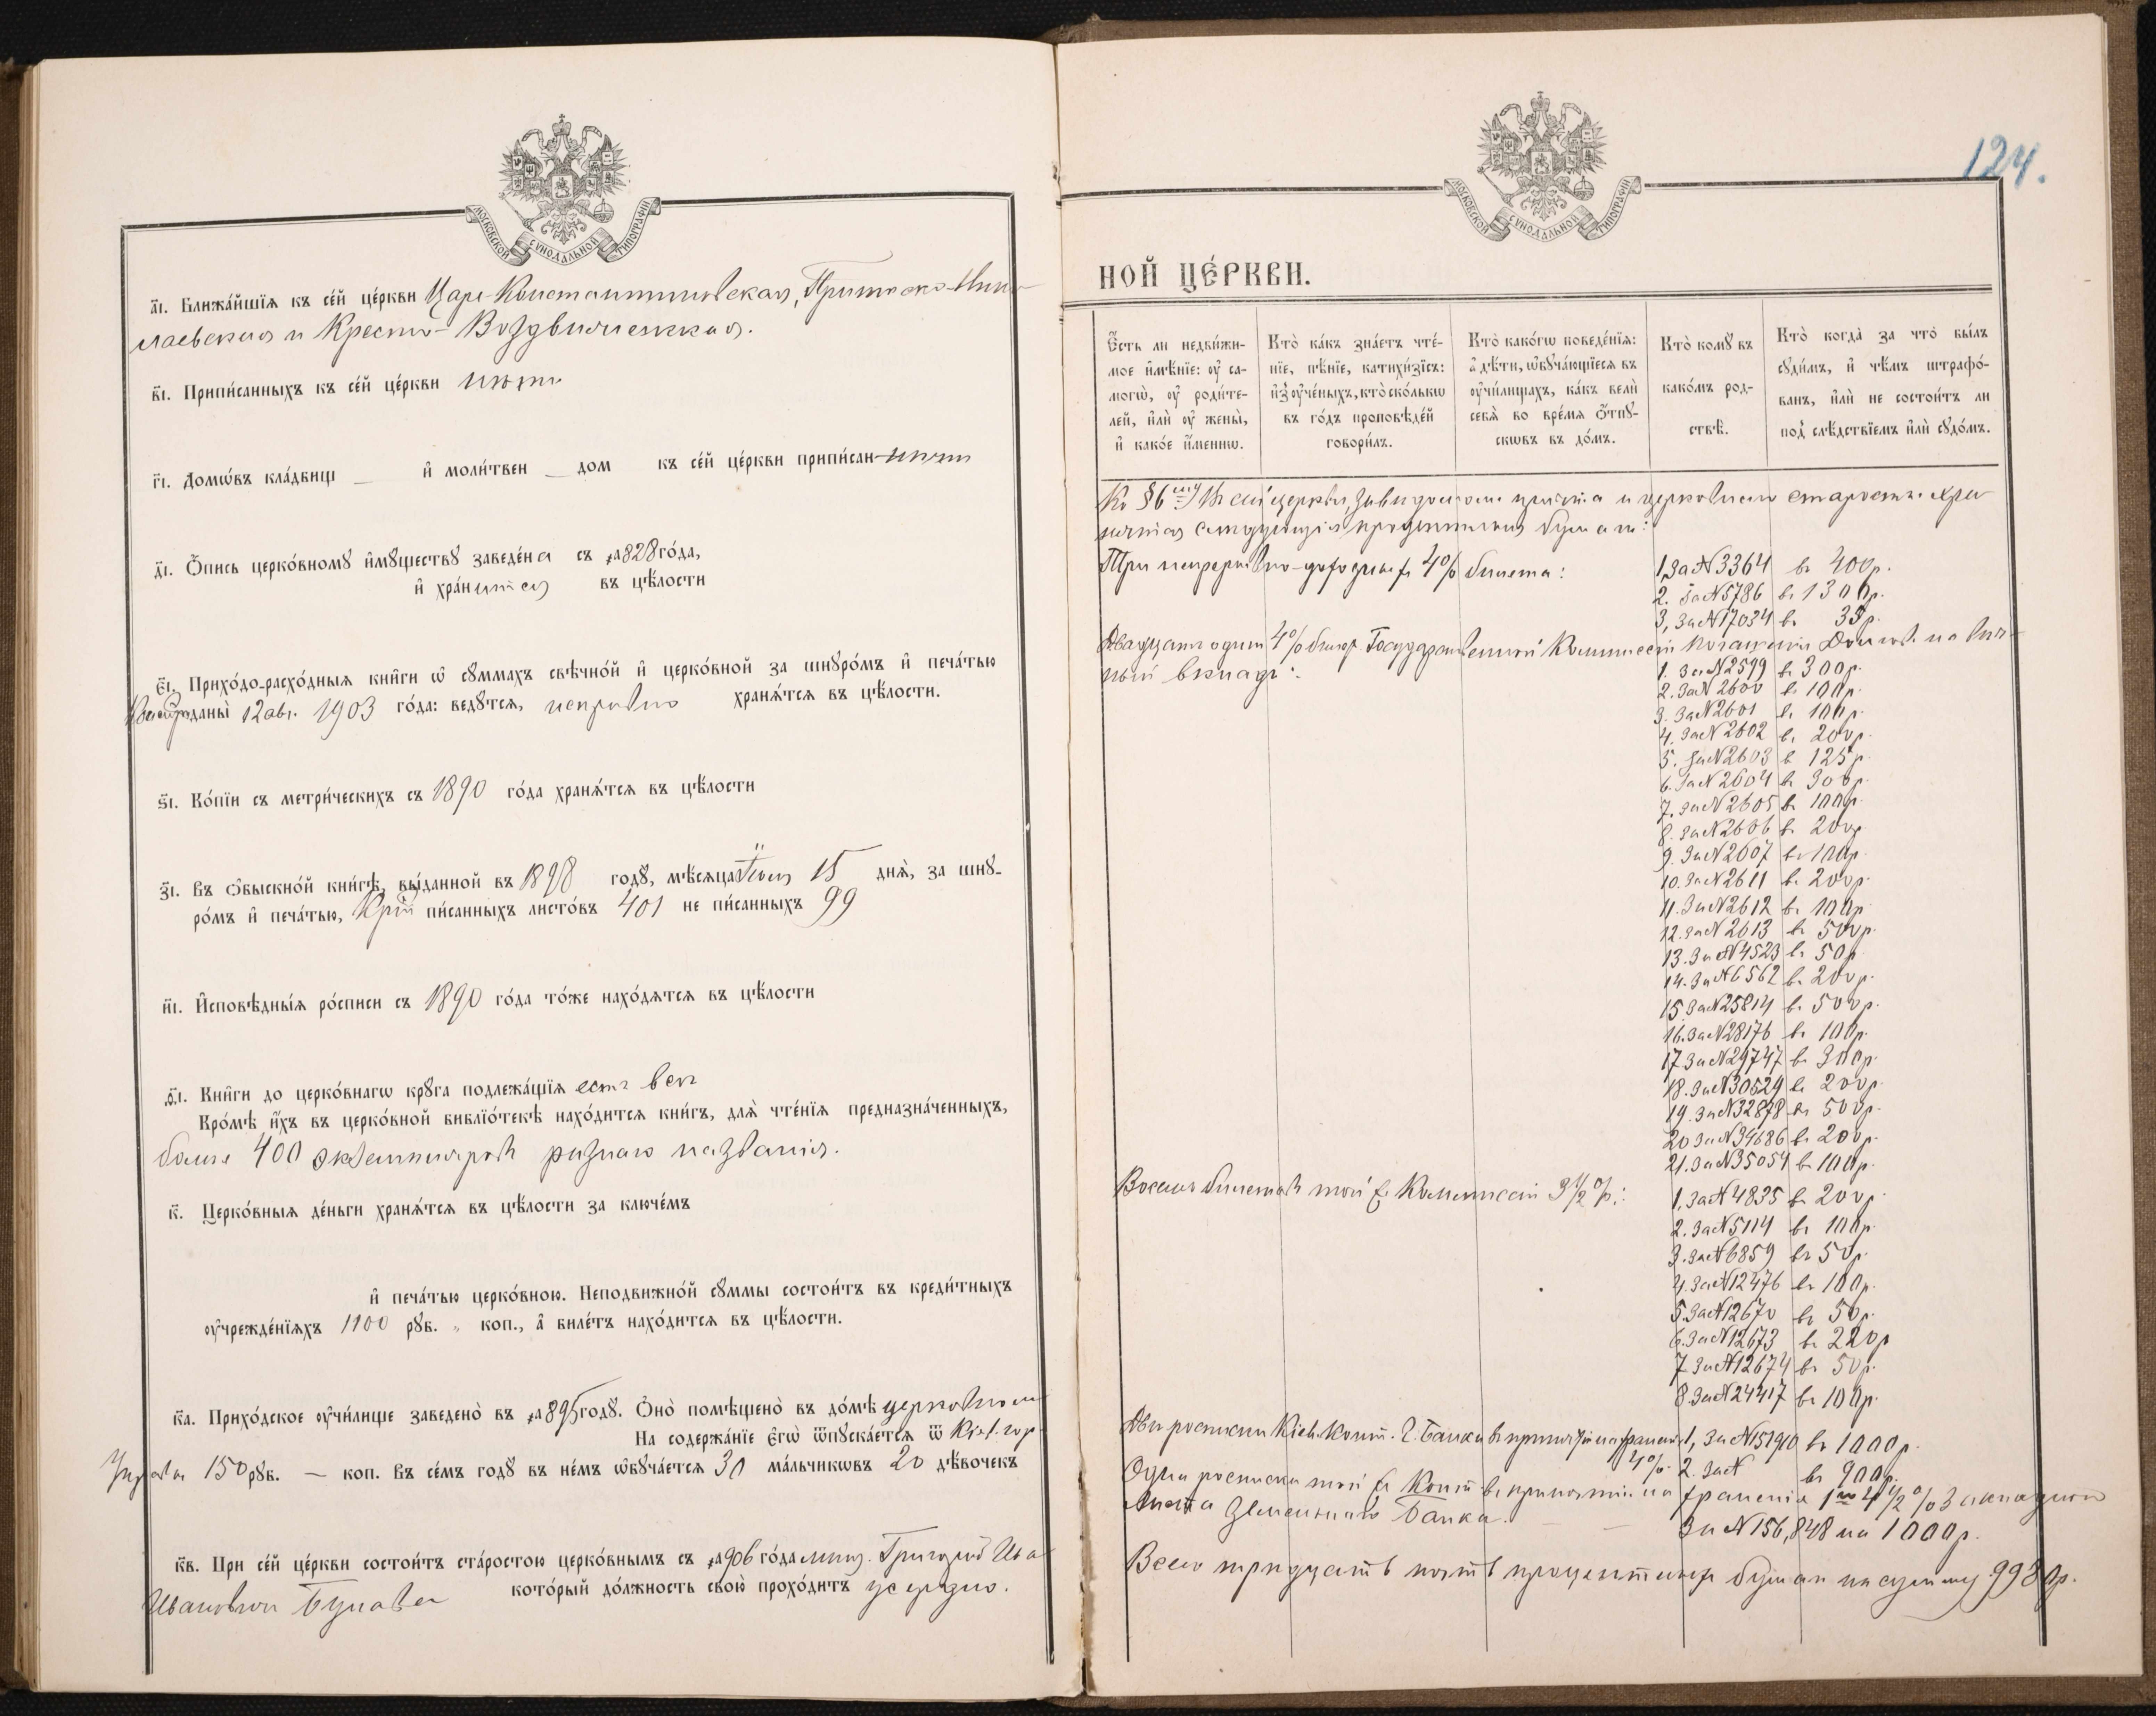 МОСКОВСКОЙ СѴНОДАЛЬНОЙ ТИПОГРАФІИ
а҃і. Ближа́йшїѧ къ се́й це́ркви Царе-Константиновская, Притиско-Нико-
лаевская и Кресто-Воздвиженская.
в҃і. Припи́санныхъ къ се́й це́ркви нѣтъ
г҃і. Домѡ́въ кла́дбищ — и҆ моли́твен — дом къ се́й це́ркви припи́сан нѣтъ
д҃і. Ѻ҆́пись церко́вномꙋ и҆мꙋ́ществꙋ заведе́на съ ҂а828 го́да,
и҆ храни́тся въ цѣ́лости
є҃і. Прихо́до-расхо́дныѧ кни̑ги ѡ҆ сꙋ́ммахъ свѣчно́й и҆ церко́вной за шнꙋро́мъ и҆ печа́тью
даны̀ 12 авг. 1903 го́да: ведꙋ́тсѧ, исправно хранѧ́тсѧ въ цѣ́лости.
ѕ҃і. Ко́пїи съ метри́ческихъ съ 1890 го́да хранѧ́тсѧ въ цѣ́лости
з҃і. Въ ѻ҆́быскно́й кни́гѣ, вы́данной въ 1898 годꙋ̀, мѣ́сѧца 15 днѧ̀, за шнꙋ-
ро́мъ и҆ печа́тью, пи́санныхъ листо́въ 401 не пи́санныхъ 99
и҃і. И҆сповѣ́дныѧ ро́списи съ 1890 го́да то́же нахо́дѧтсѧ въ цѣ́лости
ѳ҃і. Кни̑ги до церко́внагѡ крꙋ́га подлежа́щїѧ есть все
Кро́мѣ и҆́хъ въ церко́вной библїо́текѣ нахо́дитсѧ кни́гъ, длѧ̀ чте́нїѧ предназна́ченныхъ,
болѣе 400 экземпляровъ разнаго названія.
к҃. Церко́вныѧ де́ньги хранѧ́тсѧ въ цѣ́лости за ключе́мъ
и҆ печа́тью церко́вною. Неподви́жно́й сꙋ́ммы состои́тъ въ креди́тныхъ
оу҆чрежде́нїѧхъ 1100 рꙋ́б. „ коп., а҆ биле́тъ нахо́дитсѧ въ цѣ́лости.
к҃а. Прихо́дское оу҆чи́лище заведено̀ въ ҂а895 годꙋ̀. Ѻ҆но̀ помѣщено̀ въ до́мѣ церковномъ
На содержа́нїе є҆гѡ̀ ѿпꙋска́етсѧ ѿ Кіев. гор.
Управы 150 рꙋб. — коп. Въ се́мъ годꙋ̀ въ не́мъ ѡ҆бꙋча́етсѧ 30 ма́льчикѡвъ 20 дѣ́вочекъ
к҃в. При се́й це́ркви состои́тъ ста́ростою церко́внымъ съ ҂а906 го́да Григорій Ива
Ивановичъ кото́рый до́лжность свою̀ прохо́дитъ усердно.
124.
МОСКОВСКОЙ СѴНОДАЛЬНОЙ ТИПОГРАФІИ
НОЙ ЦЕ́РКВИ.
Є҆́сть ли недви́жи-
мое и҆мѣ́нїе: оу҆ са-
могѡ̀, оу҆ роди́те-
лей, и҆лѝ оу҆ жены̀,
и҆ како́е и҆́меннѡ.
Кто̀ ка́къ зна́етъ чте́-
нїе, пѣ́нїе, катихи́зїсъ:
и҆з̾ оу҆че́ныхъ, кто̀ ско́лькѡ
въ го́дъ проповѣ́дей
говори́лъ.
Кто̀ како́гѡ поведе́нїѧ:
а҆ дѣ́ти, ѡ҆бꙋча́ющїесѧ въ
оу҆чи́лищахъ, ка́къ велѝ
себѧ̀ во вре́мѧ ѻ҆́тпꙋ-
скѡвъ въ до́мъ.
Кто̀ комꙋ̀ въ
како́мъ род-
ствѣ̀.
Кто̀ когда̀ за что̀ бы́лъ
сꙋди́мъ, и҆ чѣ́мъ штрафо́-
ванъ, и҆лѝ не состои́тъ ли
под̾ слѣ́дствїемъ и҆лѝ сꙋдо́мъ.
Къ §6му Въ сей церкви, причта и церковнаго старосты хра-
нятся слѣдующія процентныя бумаги:
Три непрерывно-доходныхъ 4% билета: 1, За № 3364 въ 400 р.
2. За № 5786 въ 1300 р.
3, За № 17034 въ 35 р.
Двадцать одинъ 4% билет Государственной Коммиссіи Погашенія Долговъ на вѣч-
ный вкладъ: 1. За № 2599 въ 300 р.
2. За № 2600 въ 100 р.
3. За № 2601 въ 100 р.
4. За № 2602 въ 200 р.
5. За № 2603 въ 125 р.
6. За № 2604 въ 300 р.
7. За № 2605 въ 100 р.
8. За № 2606 въ 200 р
9. За № 2607 въ 100 р.
10. За № 2611 въ 200 р.
11. За № 2612 въ 100 р.
12. За № 2613 въ 500 р.
13. За № 4523 въ 50 р.
14. За № 6562 въ 200 р.
15. За № 25814 въ 500 р.
16. За № 28176 въ 100 р.
17 За № 29747 въ 300 р.
18. За № 30529 въ 200 р.
19. За № 32878 въ 500 р.
20 За № 34686 въ 200 р.
21. За № 35054 въ 100 р.
Восемь билетовъ той же Коммиссіи 3 1/2 %: 1, За № 4835 въ 200 р.
2. За № 5114 въ 100 р.
3. За № 6859 въ 50 р.
4. За № 12476 въ 100 р.
5. За № 12670 въ 50 р.
6. За № 12673 въ 220 р
7 За № 12674 въ 50 р.
8. За № 24417 въ 100 р.
Двѣ росписки Кіев. Конт. Г. Банка въ принятіи на храненіе 1, За № 151910 въ 1000 р.
4% 2. За № въ 900 р.
Одна росписка той же Конт въ принятіи на храненіе 1го 4 1/2 % Закладного
Листа Земельнаго Банка. — — За № 156,848 на 1000 р.
Всего тридцать пять процентныхъ бумагъ на сумму 9980 р.